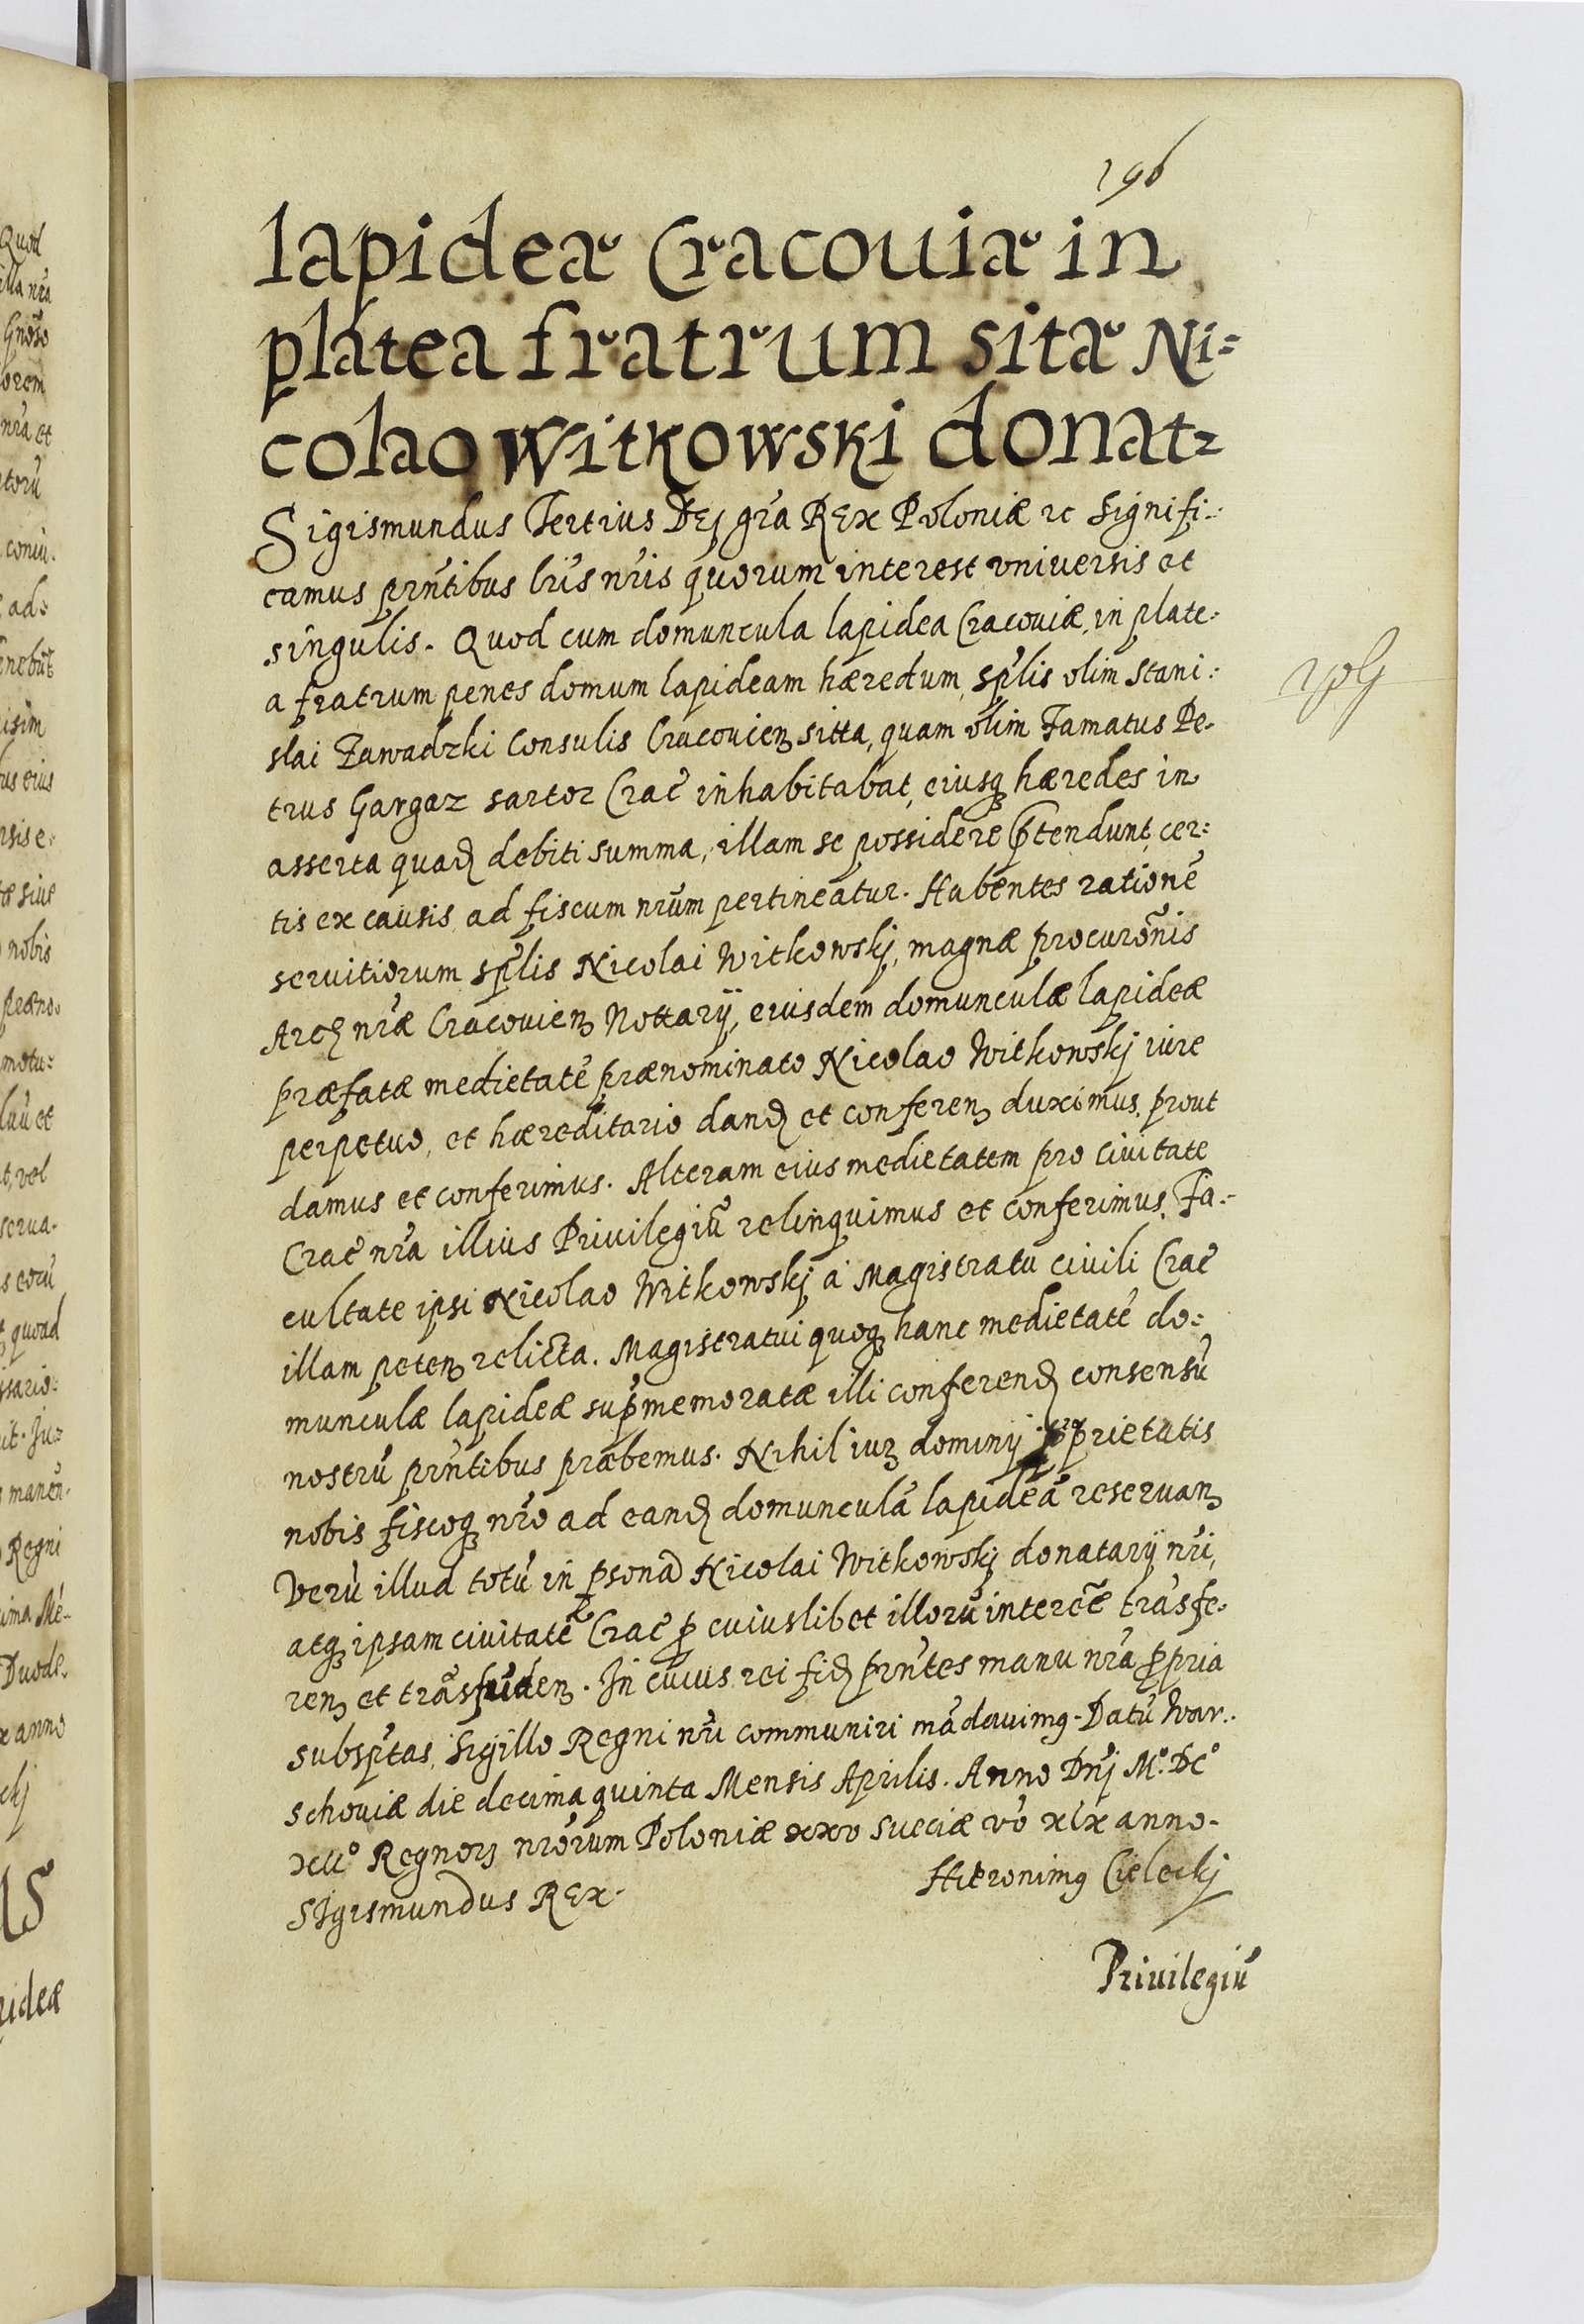 196
lapideæ Cracouiæ in
platea fratrum sitæ Ni=
colao Witkowski donat
Sigismundus Tertius DEj gra REx Poloniæ rc Signifi:
camus prntibus lris nris quorum interest vniuersis et
singulis. Quod cum domuncula lapidea Cracouiæ, in plate:
a fratrum penes domum lapideam hæredum, splis olim Stani:
slai Zawadzki Consulis Cracouien sitta, quam olim Famatus Pe.
trus Gargaz sartor Crac inhabitabat, eiusq hæredes in
asserta quad debiti summa, illam se possidere ptendunt, cer:
tis ex causis ad fiscum nrum pertineatur. Habentes ratione
seruitiorum splis Nicolai Witkowskj, magnæ procuronis
Arc nræ Cracouien Nottarij, eiusdem domunculæ lapideæ
præfatæ medietate prænominato Nicolao Witkowskj iure
perpetuo, et hæreditario dand et conferen duximus, prout
damus et conferimus. Alteram eius medietatem pro Ciuitate
Crac nra illius Priuilegiu relinquimus et conferimus. Fa-
cultate ipsi Nicolao Witkowskj a Magistratu ciuili Crac
illam peten relicta. Magistratui quoq hanc medietate do:
munculæ lapideæ supmemoratæ illi conferend consensu
nostru prntibus præbemus. Nihil iur dominij pprietatis
nobis fiscoq nro ad eand domuncula lapidea reseruan
Veru illud totu in psona Nicolai Witkowskj donatarij nri,
atq ipsam ciuitate Crac p cuiuslibet illoru interee trasfe.
ren et trasfuden. In cuius rei fid prntes manu nra ppria
subsptas, Sigillo Regni nri communiri madauimq. Datu War.
schouiæ die decima quinta Mensis Aprilis. Anno Dnj M.° DC°
XII° Regnor nrorum Poloniæ xxv Sueciæ vo xix anno.
SIgismundus REx.
Hieronimq Cieleckj
Priuilegiu